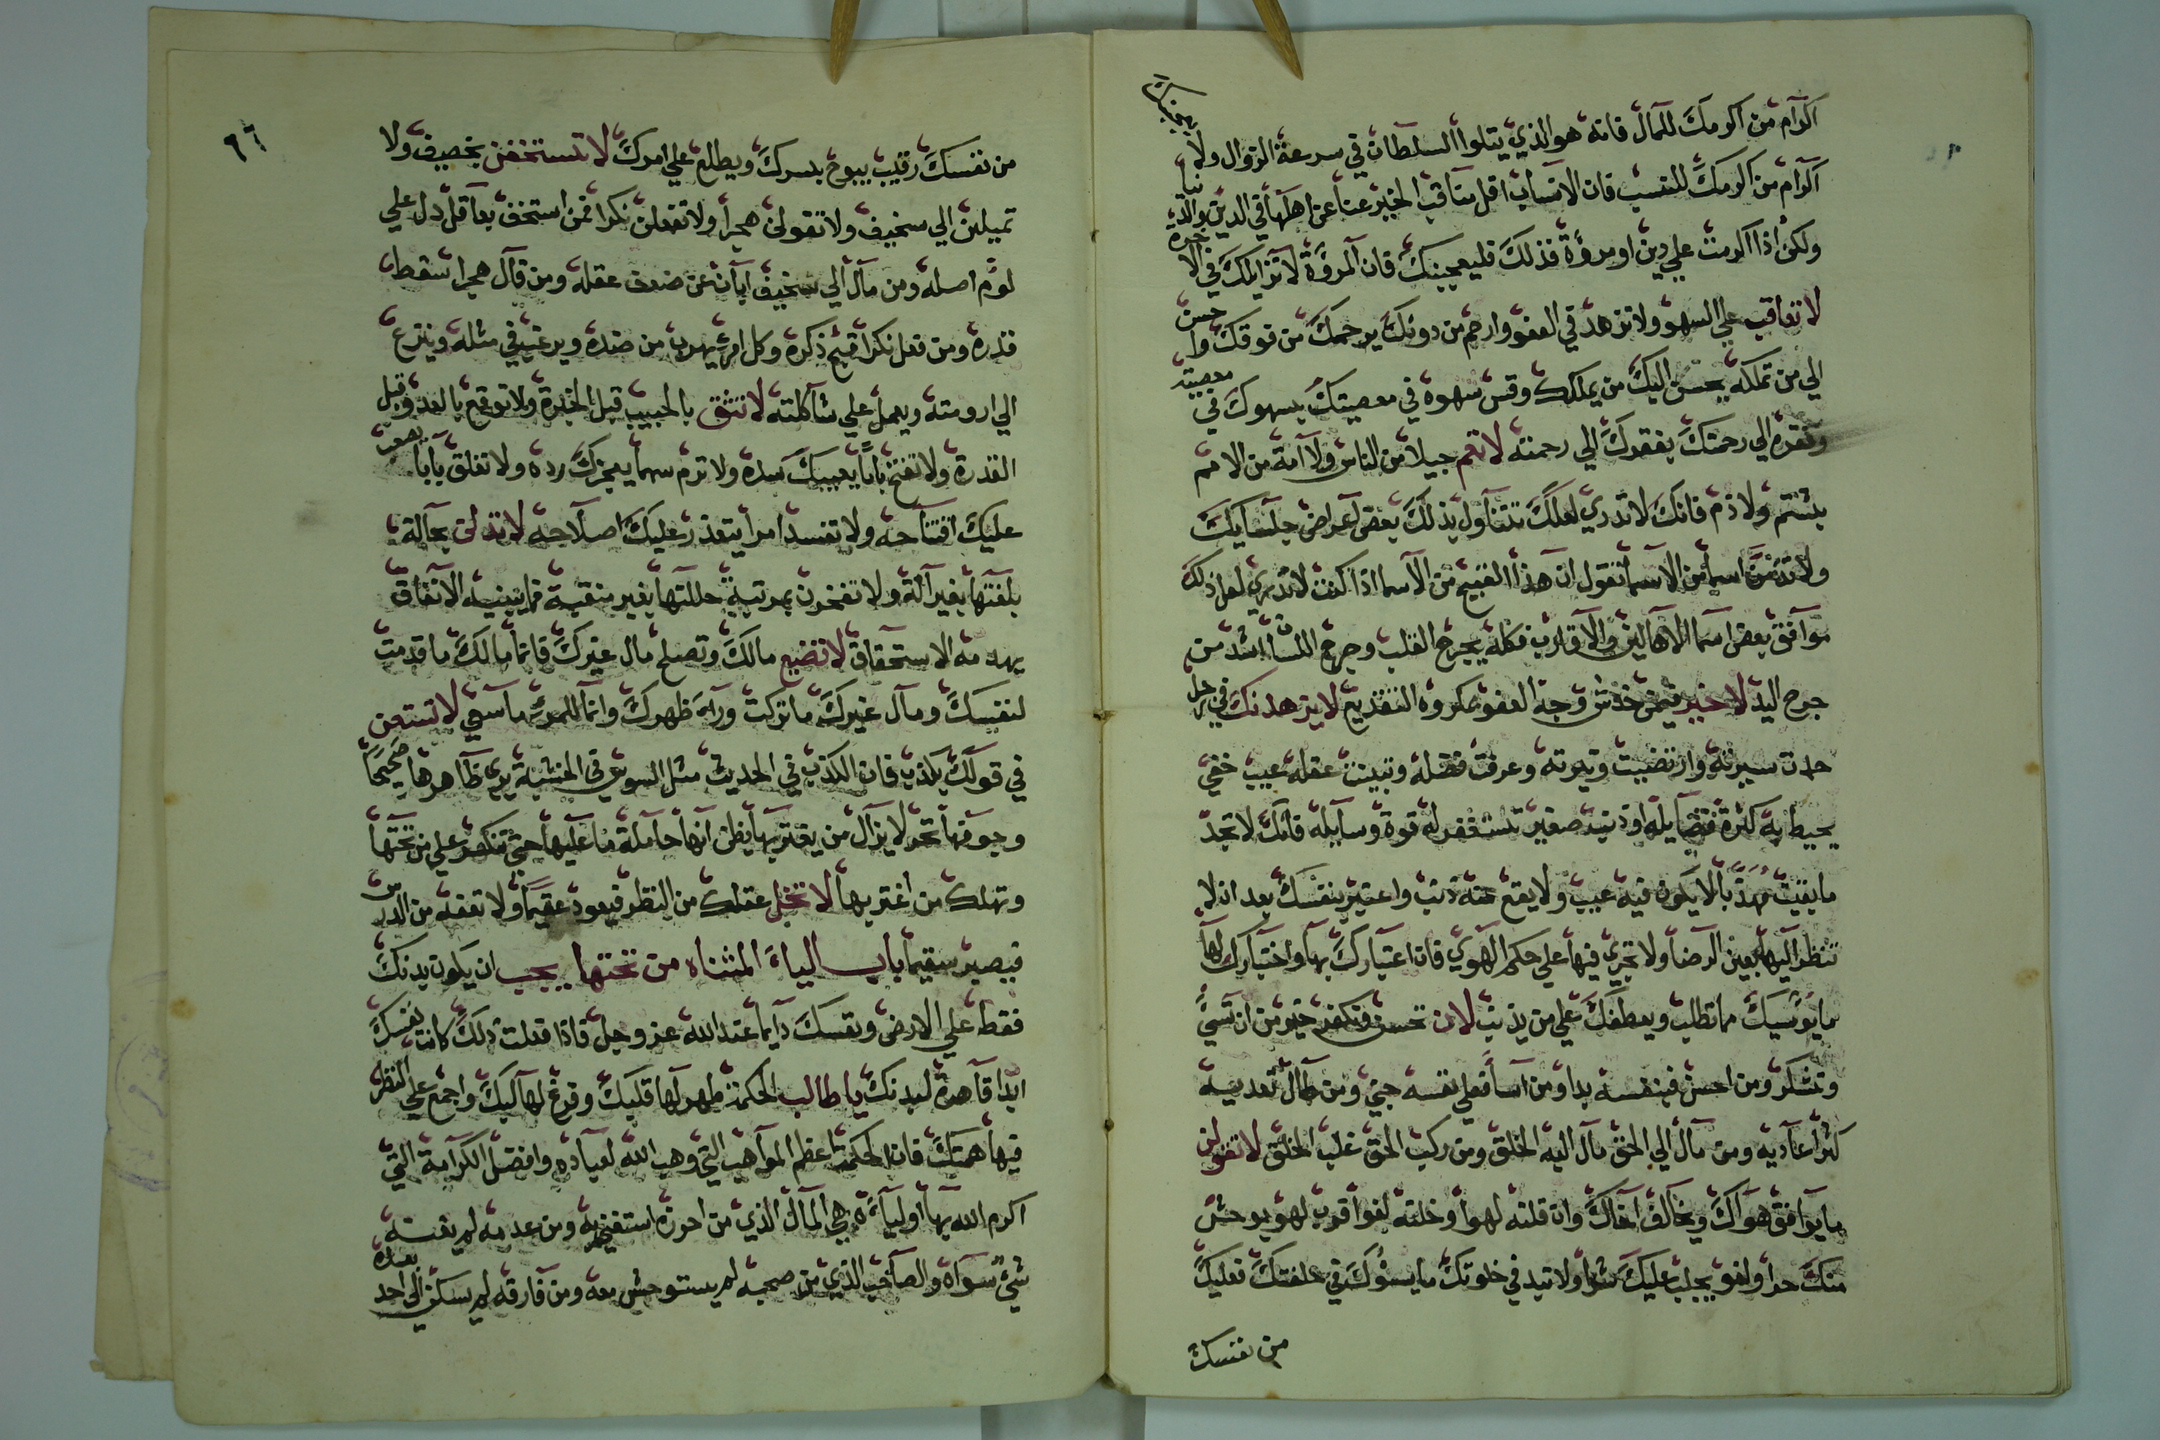 اكرام من اكرمك للمال فانه هو الذي يتلوا السلطان في سرعة الزوال ولا يعجبنك
اكرام من اكرمك للنسب فان الانساب اقل مناقب الخير عنا عن اهلها في الدين والدنيا
ولكن اذا اكرمت علي دين او مروة فذلك فليعجبنك فان المروة لا تزايلك في الاخرة
لا تعاقب علي السهو ولا تزهد في العفو وارحم من دونك يرحمك من فوقك واحسن
الي من تملكه يحسن اليك من يملكك وقس سهوه في معصيتك بسهوك في معصيته
وفقره الي رحمتك بفقرك الي رحمته لا تعم جيلا من الناس ولا امة من الامم
بشتم ولا ذم فانك لا تدري لعلك تتناول بذلك بعض اعراض جلسايك
ولا تذمن اسما من الاسما تقول ان هذا القبيح من الاسما اذا كنت لا تدري لعل ذلك
موافق بعض اسما الاهالين والاقارب فكله يجرح القلب وجرح اللسان اشد من
جرح اليد لا خير فيمن خدش وجه العفو بمكروه التقذيع لا يزهدنك في رجل
حمدت سيرته وارتضيت وتيرته وعرفت فضله وتبينت عقله عيب خفي
يحيط به كثرة فضايله او ذنب صغير تستغفر له قوة وسايله فانك لا تجد
ما بقيت مهذبا لا يكون فيه عيب ولا يقع منه ذنب واعتبر بنفسك بعد ان لا
تنظر اليها بعين الرضا ولا تجري فيها علي حكم الهوي فان اعتبارك بها واختيارك لها
ما يؤنسيك مما تطلب ويعطفك علي من يذنب لان تحسن وتكفر خير من ان تسئ
وتشكر ومن احسن فبنفسه بدا ومن اسا فعلي نفسه جني ومن طال تعديه
كثر اعاديه ومن مال الي الحق مال اليه الخلق ومن ركب الحق غلب الخلق لا تقولن
ما يوافق هواك ويخالف اخاك وان قلته لهوا وخلته لغوا فرب لهو يوحش
منك حرا ولغو يجلب عليك شرا ولا تبد في خلوتك ما يسؤك في علنتك فعليك
من نفسك
٦٦
من نفسك رقيب يبوح بسرك ويطلع علي امرك لا تستخفن بحصيف ولا
تميلن الي سخيف ولا تقولن هجرا ولا تفعلن نكرا فمن استخف بعاقل دل علي
لؤم اصله ومن مال الي سخيف ابان عن ضعف عقله ومن قال هجرا سقط
قدره ومن فعل نكرا قبح ذكره وكل امرئ يهرب من ضده ويرغب في مثله وينزع
الي ارومته ويعمل علي شاكلته لا تثق بالحبيب قبل الخبرة ولا توقع بالعدو قبل
القدرة ولا تفتح بابا يعييك سده ولا ترم سهما يعجزك رده ولا تغلق بابا يصعب
عليك افتتاحه ولا تفسد امرا يتعذر عليك اصلاحه لا تدلن بحالة
بلغتها بغير آلة ولا تفخرن بمرتبة حللتها بغير منقبة فما يبنيه الاتفاق
يهدمه الاستحقاق لا تضيع مالك وتصلح مال غيرك فانما مالك ما قدمت
لنفسك ومال غيرك ما تركت ورآء ظهرك وانما للمرء ما سعي لا تستعن
في قولك بكذب فان الكذب في الحديث مثل السوس في الخشبة يري ظاهرها صحيحا
وجوفها نخر لا يزال من يغتر بها يظن انها حاملة ما عليها حتي تنكسر علي من تحتها
وتهلك من اغتر بها لا تخل عقلك من النظر فيعود عقيما ولا تعفه من الدرس
فيصير سقيما باب الياء المثناه من تحتها يجب ان يكون بدنك
فقط علي الارض ونفسك دايما عند الله عز وجل فاذا فعلت ذلك كانت نفسك
ابدا قاهرة لبدنك يا طالب الحكمة طهر لها قلبك وفرغ لها لبك واجمع علي النظر
فيها همتك فان الحكمة اعظم المواهب التي وهب الله لعباده وافضل الكرامة التي
اكرم الله بها اولياءه هي المال الذي من احرزه استغني به ومن عدمه لم يغنه
شئ سواه والصاحب الذي من صحبه لم يستوحش معه ومن فارقه لم يسكن الي احد بعده